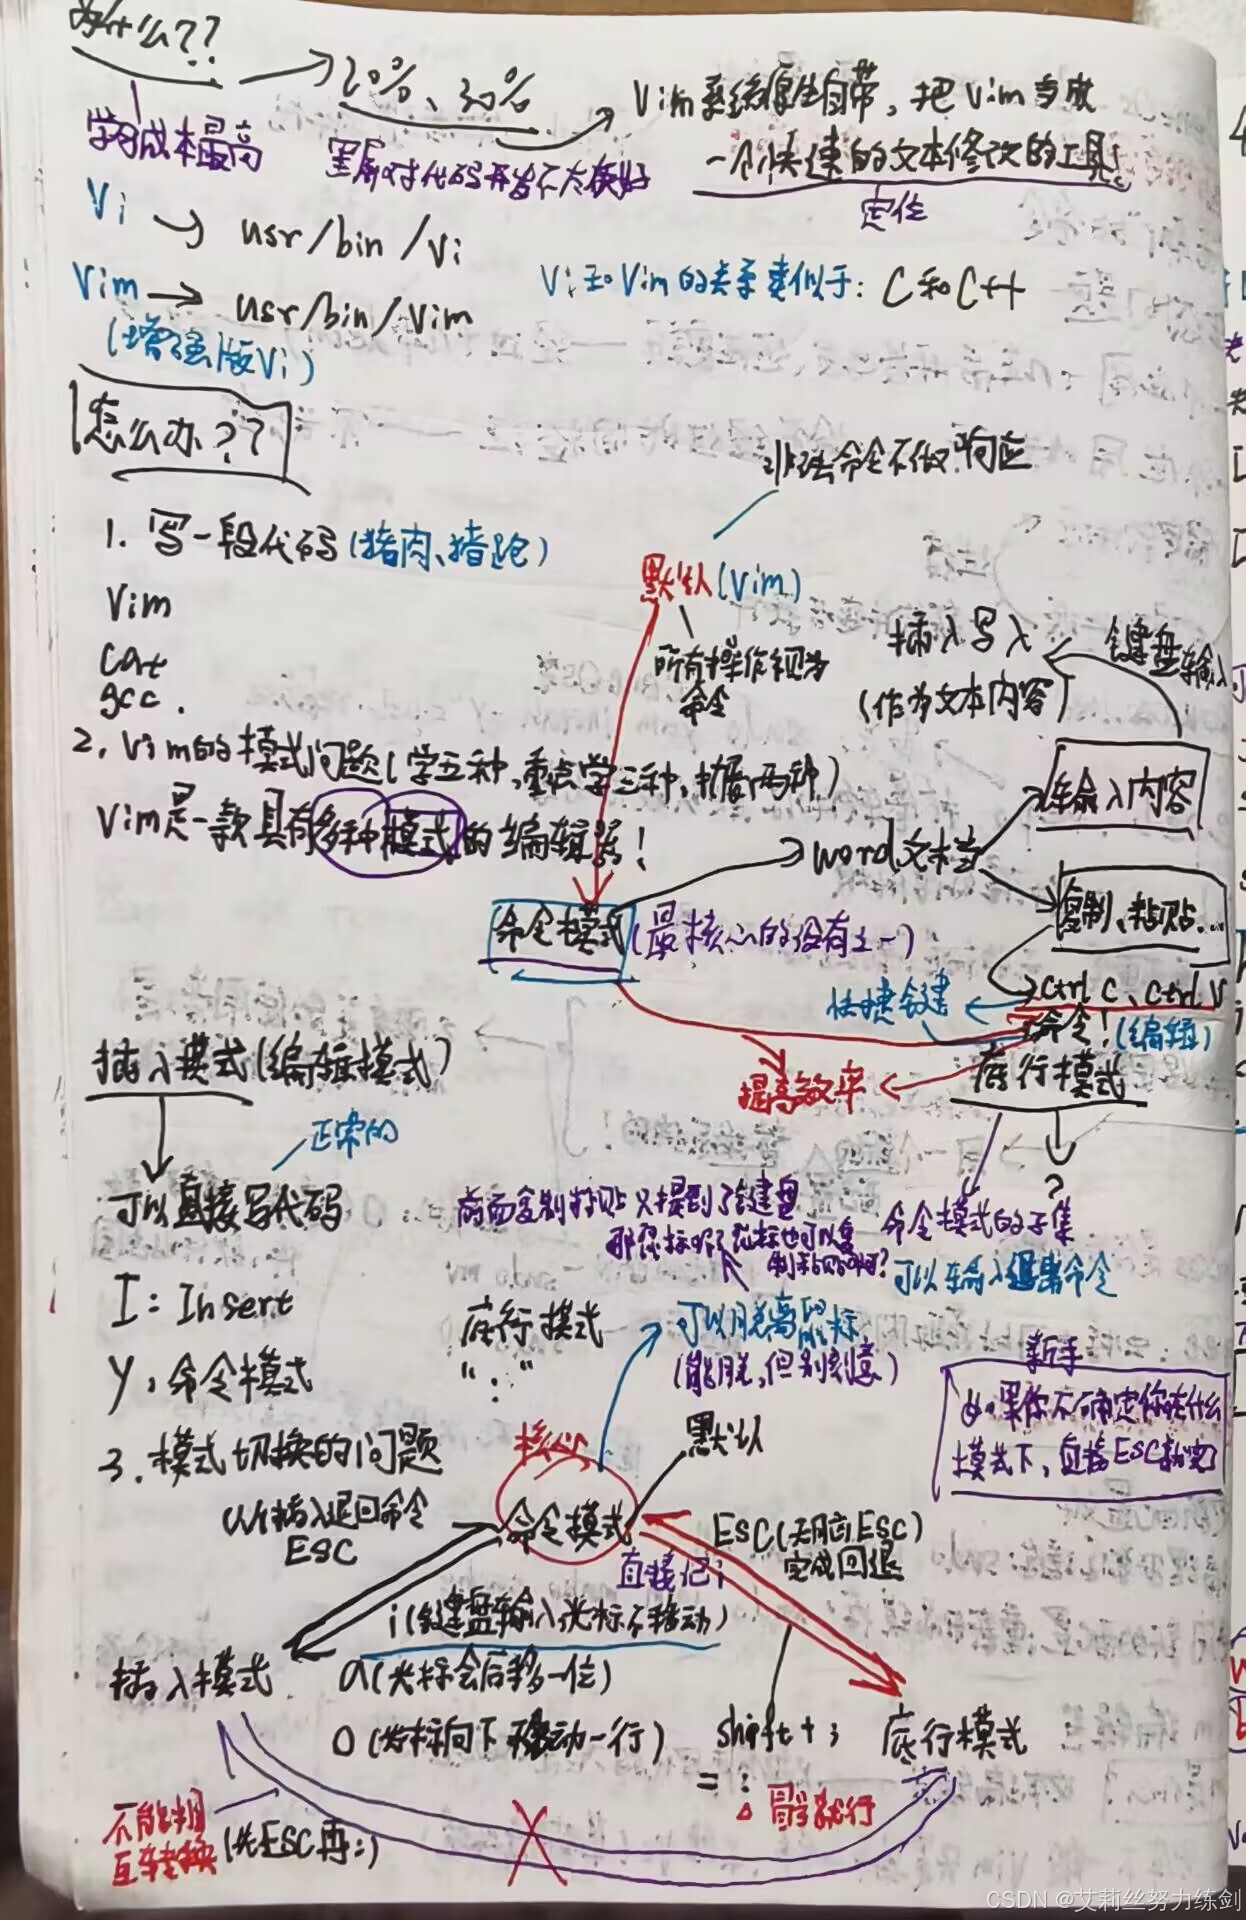 为什么??
20%、30%
Vim系统原生自带,把Vim当做
一个快速的文本修改的工具!
定位
学习成本最高
黑屏对代码开发不太友好
Vi → usr/bin/vi
Vim → usr/bin/vim
(增强版Vi)
Vi和Vim的关系类似于: C和C++
怎么办??
非法命令不做响应
1. 写一段代码(猪肉、猪跑)
默认(Vim)
Vim
cat
gcc.
所有操作视为
命令
插入写入
(作为文本内容)
键盘输入
2. Vim的模式问题(学五种,重点学三种,扩展两种)
Vim是一款具有多种模式的编辑器!
输入内容
word文档
复制、粘贴...
命令模式(最核心的没有之一)
ctrl c、ctrl v
快捷键
命令!(编辑)
提高效率
插入模式(编辑模式)
底行模式
正常的
?
可以直接写代码
前面复制粘贴只提到了键盘
那鼠标呢?鼠标也可以复
制粘贴啊?
命令模式的子集
可以输入退出命令
I: Insert
底行模式
“:”
可以脱离鼠标
(能脱,但别刻意)
y:命令模式
新手
如果你不确定你在什么
模式下,直接ESC就完了
3. 模式切换的问题
核心
默认
从插入退回命令
ESC
命令模式
ESC(无脑ESC)
完成回退
直接记i
i(键盘输入光标不移动)
插入模式
a(光标会后移一位)
o(光标向下移动一行)
shift+;
= :
底行模式
冒号就行
不能相
互转换
(先ESC再:)
CSDN @艾莉丝努力练剑